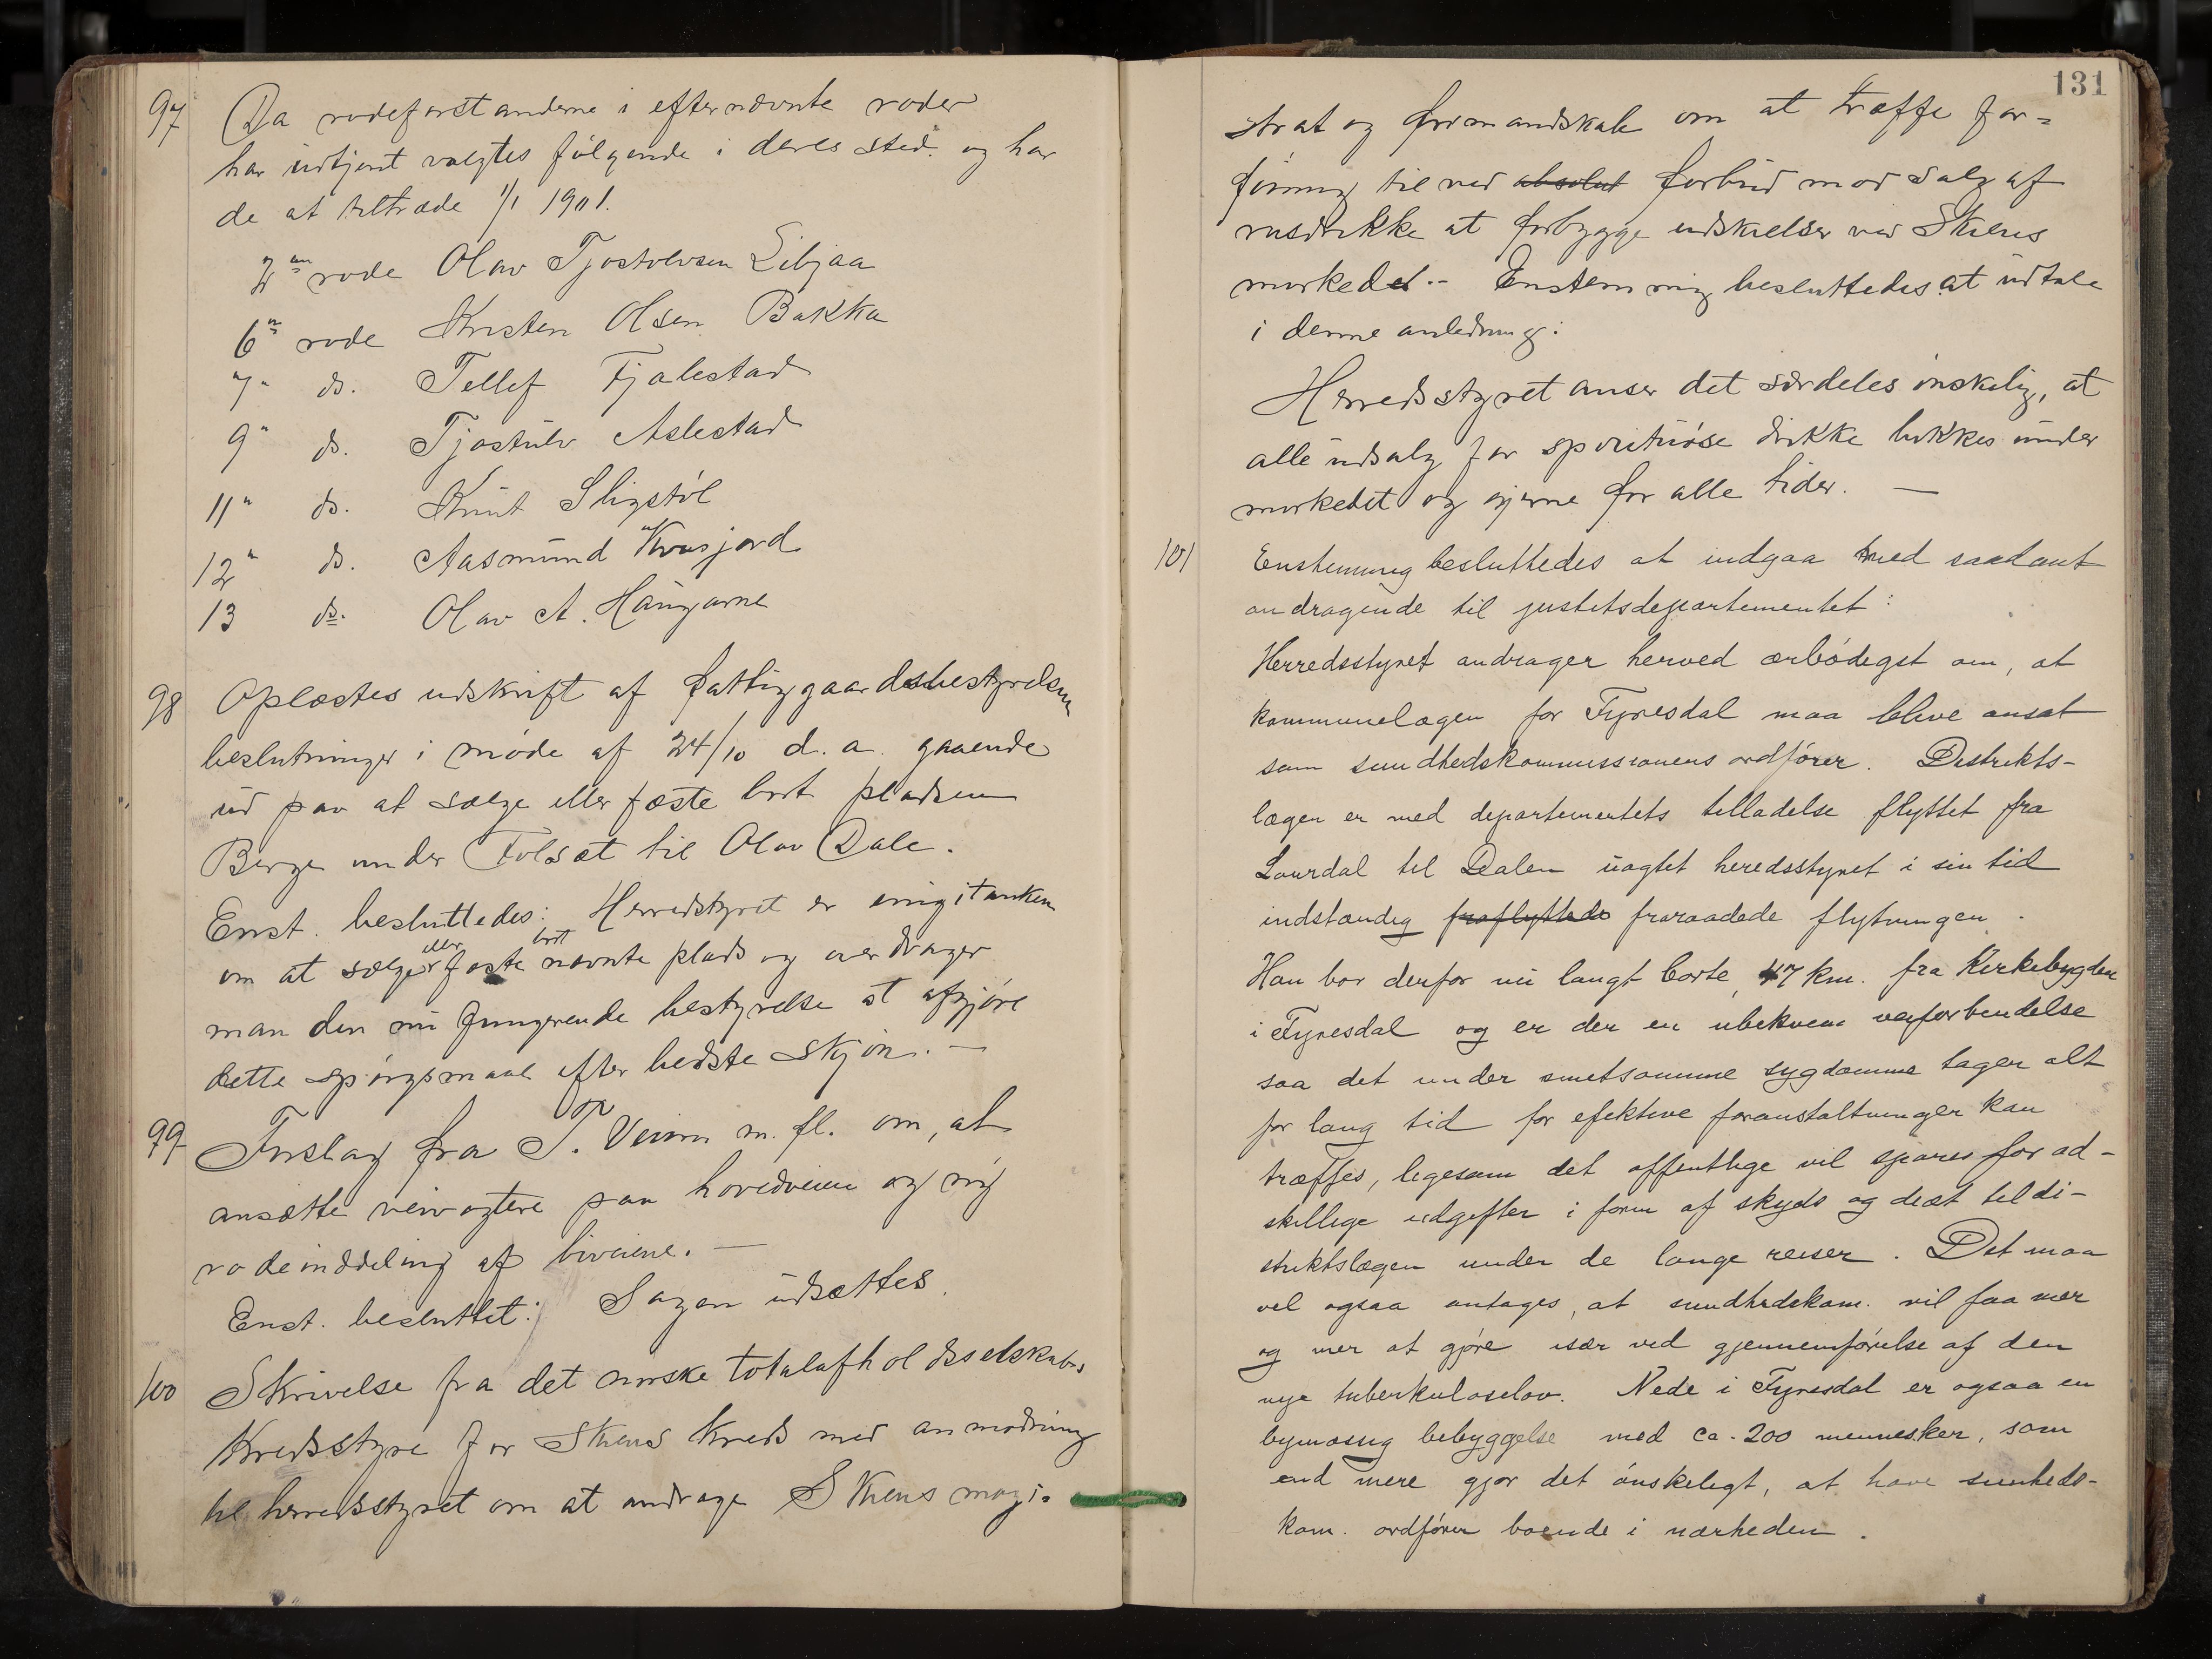 97 Da rodeforstanderne i efternævnte roder
har udtjent valgtes følgende i deres sted. og har
de at tiltræde 1/1 1901.
rode Olav Tjostolvsen Libjaa
6te rode Kristen Olsen Bakka
7" do. Tellef Fjalestad
9" do. Tjostulv Aslestad
11" do. Knut Sligstøl
12" do. Aasmund Kvasjord
13 do. Olav A. Haugarne
98 Oplæstes udskrift af fattiggaardsbestyrelsen
beslutninger i møde af 24/10 d. a. gaaende
ud paa at sælge eller fæste bort pladsen
Berge under Folsæt til Olav Dale.
Enst. besluttedes: Herredstyret er enig i tanken
om at sælge eller fæste bort nævnte plads og overdrager
man den nu fungerende bestyrelse at afgjøre
dette spørgsmaal efter bedste skjøn. —
99 Forslag fra T. Veum m. fl. om, at
ansætte veivogtere paa hovedveien og ny
rodeinddeling af biveiene. —
Enst. besluttet: Sagen udsættes.
100 Skrivelse fra det norske totalafholdsselskabs
Kredsstyre for Skiens Kreds med anmodning
til herredsstyret om at andrage Skiens magi-
131
strat og formandskab om at træffe for-
føining til ved absolut forbud mod salg af
rusdrikke at forbygge udskielser ved Skiens
markedet.- Enstemmig besluttedes at udtale
i denne anledning:
Herredsstyret anser det særdeles ønskelig, at
alle udsalg for spirituøse drikke lukkes under
markedet og gjerne for alle tider. —
101 Enstemmig besluttedes at indgaa med saadant
andragende til justitsdepartementet:
Herredsstyret andrager herved ærbødigst om, at
kommunelægen for Fyresdal maa blive ansat
som sundhedskommissionens ordfører. Distrikts-
lægen er med departementets tilladelse flyttet fra
Laurdal til Dalen uagtet heredsstyret i sin tid
indstændig fraflyttede fraraadede flytningen.
Han bor derfor nu langt borte, 47 km. fra Kirkebygden
i Fyresdal og er der en ubekvem veiforbindelse
saa det under smetsomme sygdomme tager alt
for lang tid for efektive foranstaltninger kan
træffes, ligesom det offentlige vil spares for ad-
skillige udgifter i form af skyds og diæt til di-
striktslægen under de lange reiser. Det maa
vel ogsaa antages, at sundhedskom. vil faa mer
og mer at gjøre især ved gjennemførelse af den
nye tuberkuloselov. Nede i Fyresdal er ogsaa en
bymæssig bebyggelse med ca. 200 mennesker, som
end mere gjør det ønskeligt, at have sunheds-
kom. ordfører boende i nærheden.